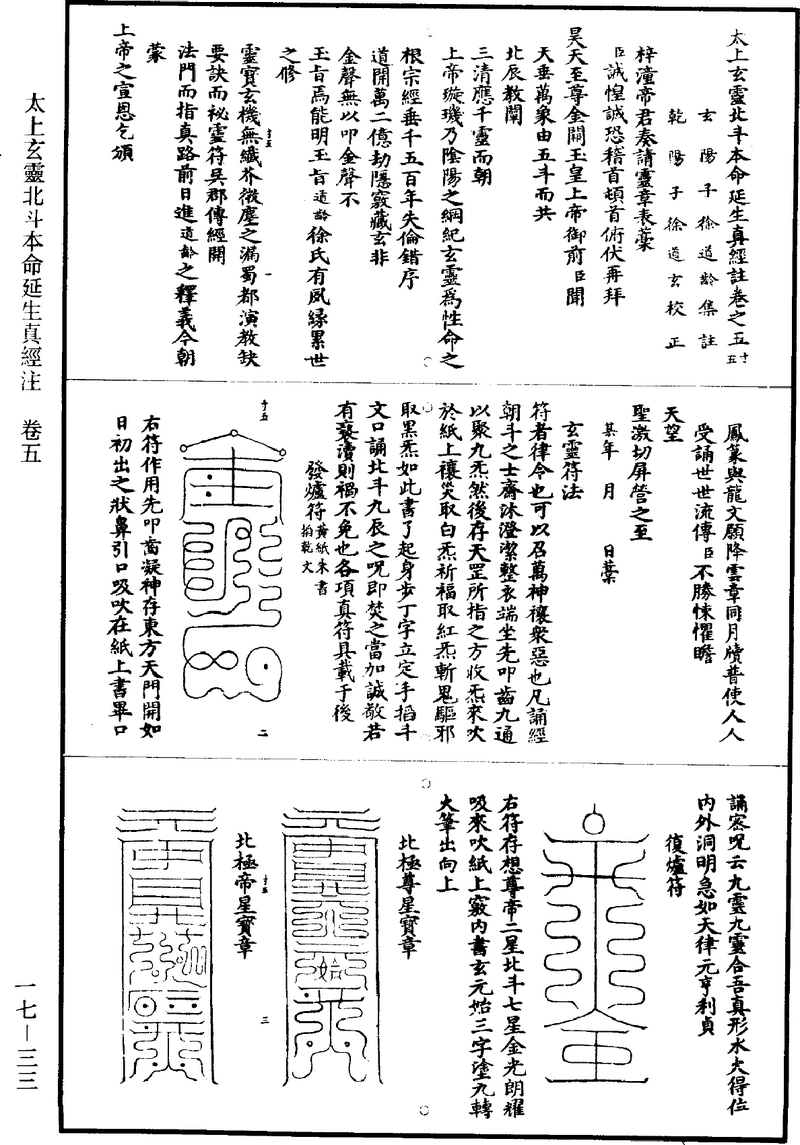 太上玄靈北斗本命延生真經註卷之五 寸五
玄陽子徐道齡集註
乾陽子徐道玄校正
梓潼帝君奏請靈章表藁
臣誠惶誠恐稽首頓首俯伏再拜
昊天至尊金闕玉皇上帝御前臣聞
天垂萬象由五斗而共
北辰教闡
三清應千靈而朝
上帝璇璣乃陰陽之綱紀玄靈為性命之
根宗經垂千五百年失倫錯序
道開萬二億劫隱竅藏玄非
金聲無以叩金聲不
玉旨焉能明玉旨道齡徐氏有夙緣累世
之修
靈寶玄機無纖芥微塵之漏蜀都演教缺
要訣而祕靈符吳郡傳經開
法門而指真路前日進道齡之釋義今朝
蒙
上帝之宣恩乞頒
鳳篆與龍文願降雲章同月牘普使人人
受誦世世流傳臣不勝悚懼瞻
天望
聖激切屏營之至
某年 月 日藁
玄靈符法
符者律令也可以召萬神禳眾惡也凡誦經
朝斗之士齋沐澄潔整衣端坐先叩齒九通
以聚九炁然後存天罡所指之方收炁來吹
於紙上禳災取白炁祈福取紅炁斬鬼驅邪
取黑炁如此書了起身步丁字立定手搯斗
文口誦北斗九辰之呪即焚之當加誠敬若
有褻瀆則禍不免也各項真符具載于後
發爐符 黃紙朱書 掐乾文
十五
二
右符作用先叩齒凝神存東方天門開如
日初出之狀鼻引口吸吹在紙上書畢口
誦密呪云九靈九靈合吾真形水火得位
內外洞明急如天律元亨利貞
復爐符
右符存想尊帝二星北斗七星金光朗耀
吸來吹紙上竅內書玄元始三字塗九轉
火筆出向上
北極尊星寶章
北極帝星寶章
十五
三
太上玄靈北斗本命延生真經注 卷五
一七—三三